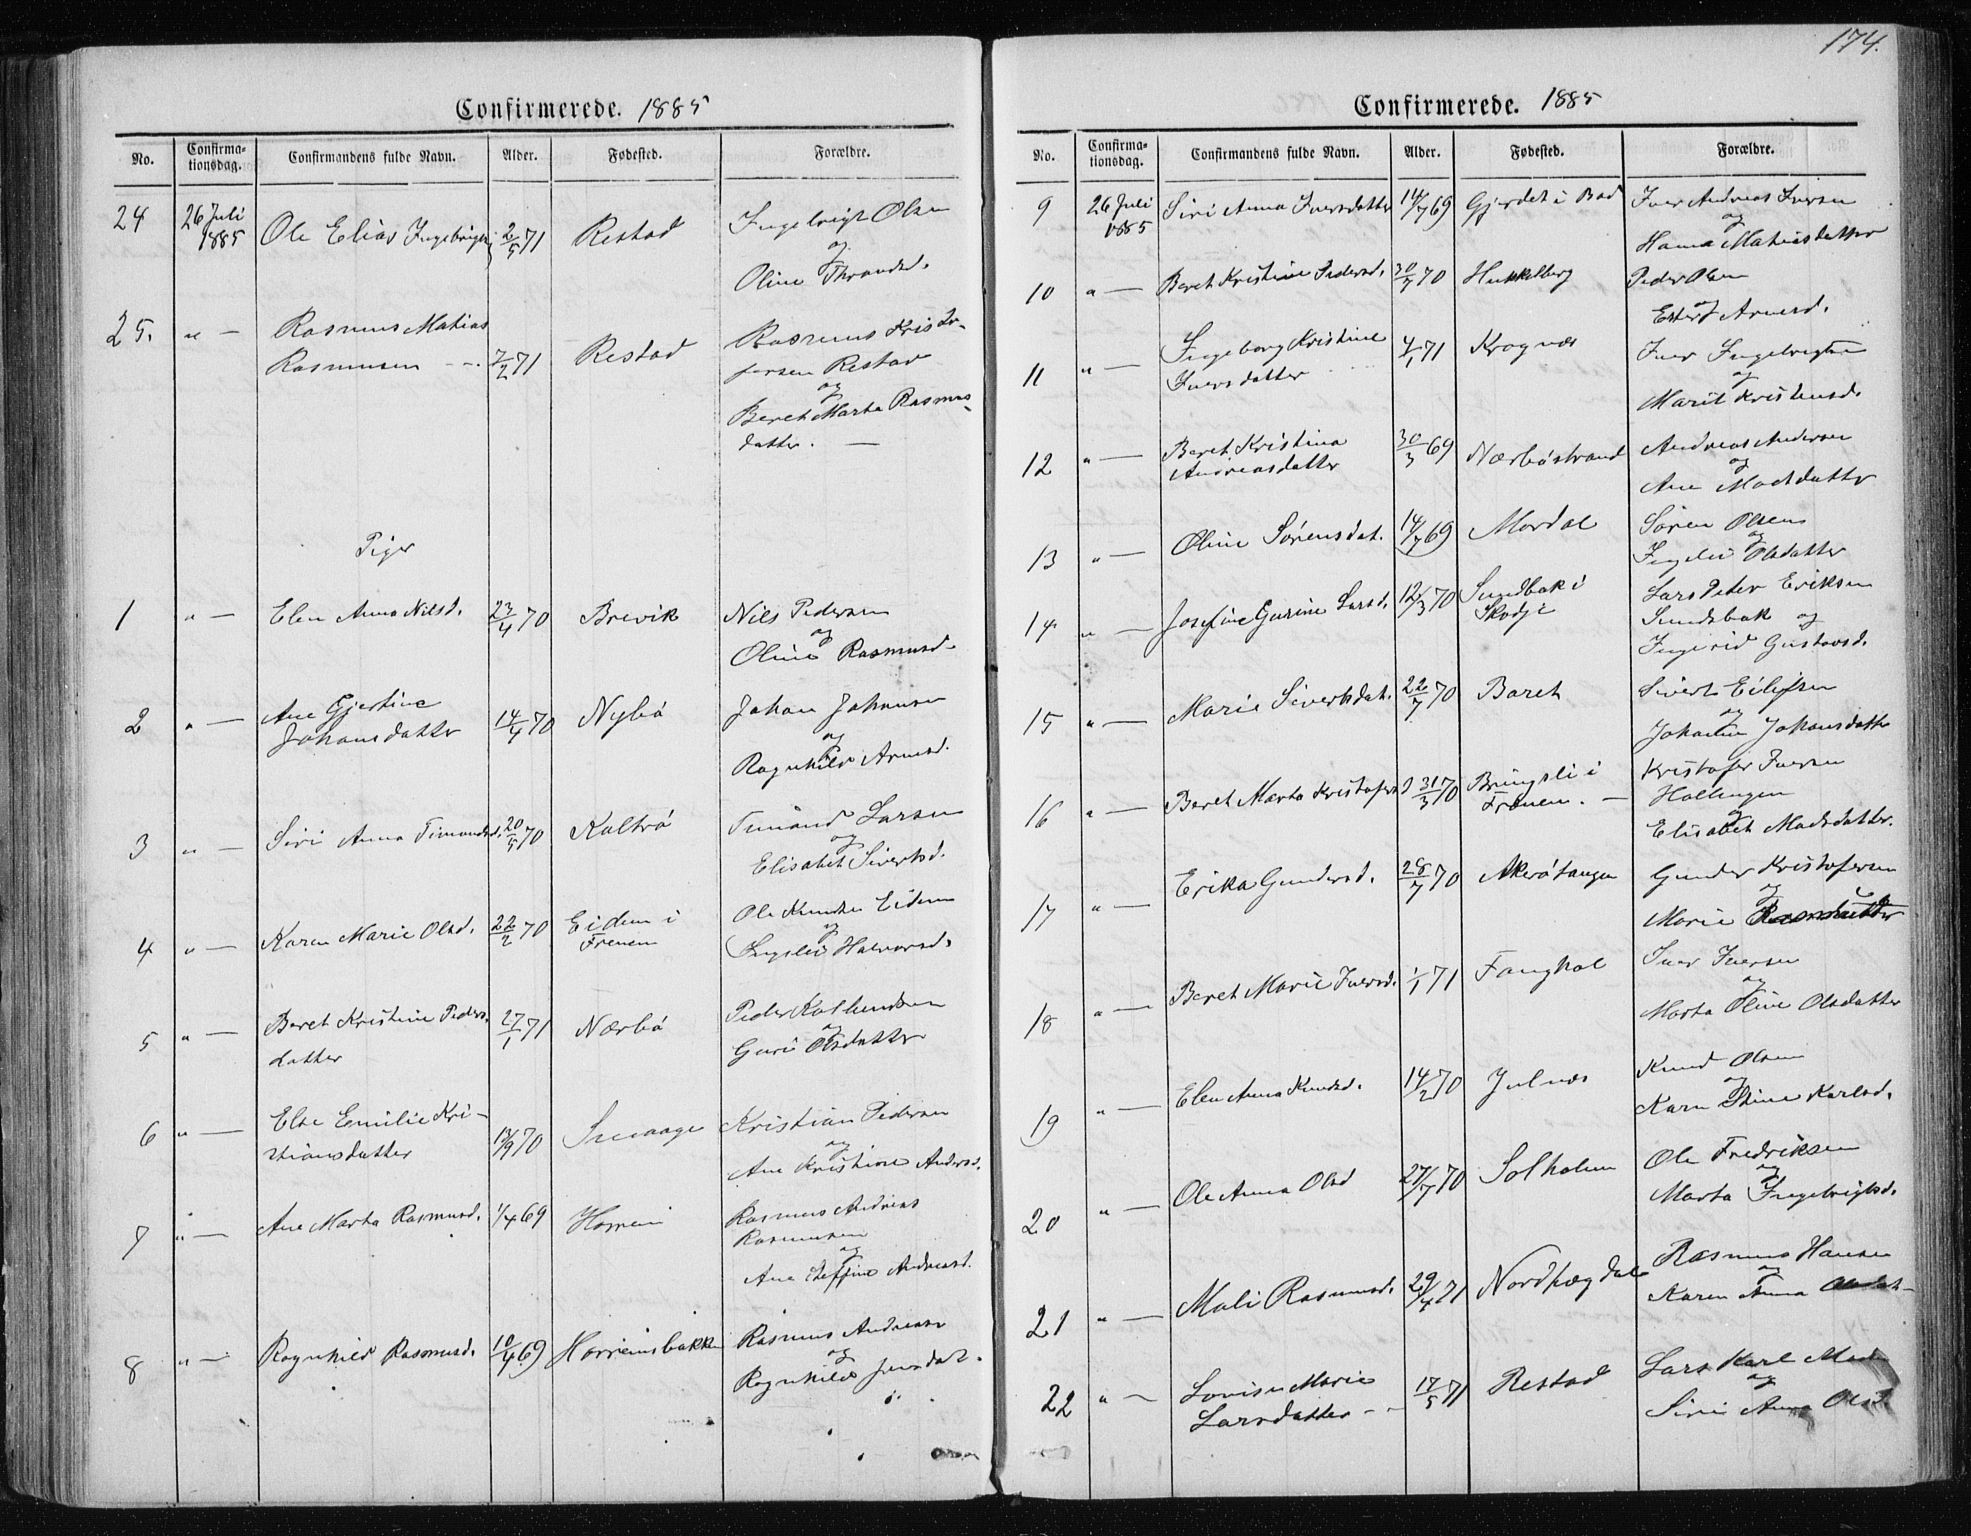 174.
Confirmerede. 1885
No. Confirma-tionsdag. Confirmandens fulde Navn. Alder. Fødested. Forældre.
24 26 Juli 1885 Ole Elias Ingebrigts 2/5 71 Restad Ingebrigt Olsen
og
Oline Throndsd.
25. " — Rasmus Matias
Rasmussen 7/2 71 Restad Rasmus Kristo-
fersen Restad
og
Beret Marta Rasmus
datter. —
Piger
1 " — Elen Anna Nilsd. 23/4 70 Brevik Nils Pedersen
og
Oline Rasmusd.
2 " — Ane Gjertine
Johansdatter 14/4 70 Nybø Johan Johansen
og
Ragnhild Arnesd.
3 " — Siri Anna Timandsd. 20/5 70 Kaltrø Timand Larsen
og
Elisabet Sivertsd.
4 " — Karen Marie Olsd. 22/2 70 Eidem i
Frenen Ole Knudsen Eidem
og
Ingelei Halvorsd.
5 " — Beret Kristine Peders.
datter 27/1 71 Nærbø Peder
og
Guri Olsdatter
6 " — Else Emilie Kri-
stiansdatter 13/9 70 Kristian Pedersen
og
Ane Kristine Andersd.
7 " — Ane Marta Rasmusd. 1/4 69 Horrem Rasmus Andreas
Rasmussen
og
Ane Andreasd.
8 " — Ragnhild Rasmusd. 10/4 69 Horremsbakken Rasmus Andreasen
og
Ragnhild Jensdat.
Confirmerede. 1885
No. Confirma-tionsdag. Confirmandens fulde Navn. Alder. Fødested. Forældre.
9 26 Juli 1885 Siri Anna Iversdatter 14/7 69 Gjerdet i Bod Iver Andreas Iversen
og
Hanna Matiasdatter
10 " — Beret Kristine Pedersd. 30/7 70 Hukkelberg Peder Olsen
og
Ester Arnesd.
11 " — Ingeborg Kristine
Iversdatter 4/1 71 Kragnæs Iver Ingebrigtsen
og
Marit Kristensd.
12 " — Beret Kristina
Andreasdatter 30/3 69 Nærbøstrand Andreas Andersen
og
Ane Madsdatter
13 " — Oline Sørensdat. 14/7 69 Mordal Søren Olsen
og
Ingelei Olsdatter
14 " — Josefine Gurine Larsd. 12/3 70 Sundbak i
Skodje Lars Peter Eriksen
Sundsbak og
Ingerid Gustavsd.
15 " — Marie Sivertsdat. 22/7 70 Baret Sivert Eilefsen
og
Johanne Johansdatter
16 " — Beret Marta Kristofers d 31/3 70 Bringsli i
Frenen. — Kristofer Iversen
Hollingen
og
Elisabet Madsdatter.
17 " — Erika Gundersd. 28/7 70 Akerøtangen Gunder Kristofersen
og
Marie
18 " — Beret Marie Iversd. 1/1 71 Fanghol Iver Iversen
og
Marta Oline Olsdatter
19 " — Elen Anna Knudsd. 14/2 70 Julnæs Knud Olsen
og
Karn Stine Karlsd.
20 " — Ole Anna Olsd 27/7 70 Solholm Ole Fredriksen
og
Marta Ingebrigtsd.
21 " — Mali Rasmusd. 29/4 71 Rasmus Hansen
og
Karen Anna Olsdat
22 " — Lovise Marie
Larsdatter — 17/5 71 Restad Lars Karl
og
Siri Anna Olsd.